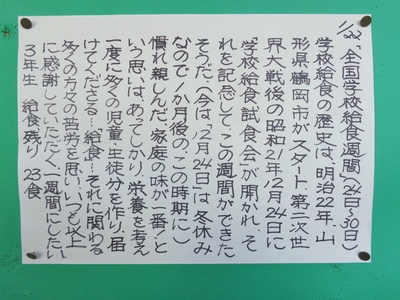 1/22「全国学校給食週間」(24日〜30日)
学校給食の歴史は、明治22年、山
形県鶴岡市がスタート。第二次世
界大戦後の昭和21年12月24日に
「学校給食試食会」が開かれ、そ
れを記念して、この週間ができた
そうだ。(今は、「12月24日」は冬休み
なので1か月後の、この時期に)
慣れ親しんだ、家庭の味が一番!と
いう思いは、あってしかり。栄養を考え
一度に多くの児童・生徒分を作り、届
けてくださる…給食…それに関わる
多くの方々の苦労を思い、いつも以上
に感謝していただく一週間にしたい。
3年生 給食残り 23食